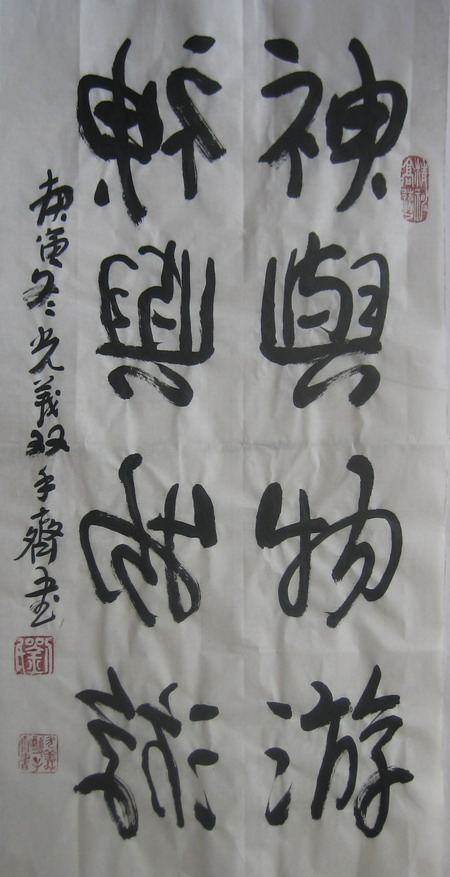 神與物游
神與物游
庚寅冬光義双手齊书